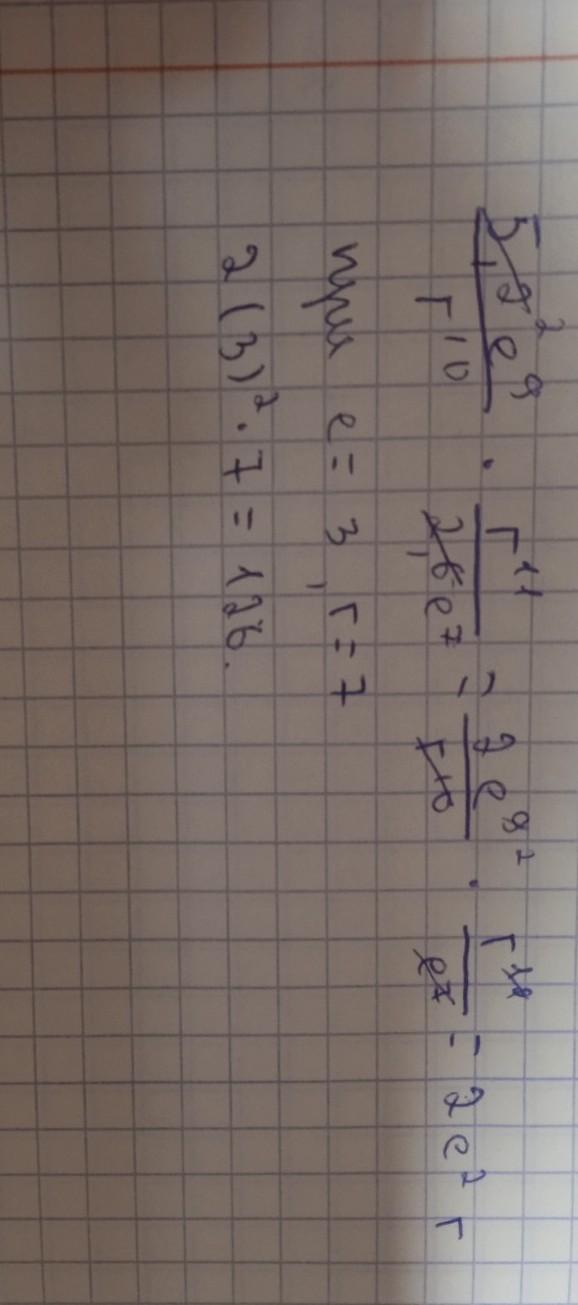 5,2² e⁹ / r¹⁰ · r¹¹ / 2,6 e⁷ = 2 e⁹ ² / r¹⁰ · r¹¹ / e⁷ = 2e² r
при e = 3, r = 7
2(3)² · 7 = 126.